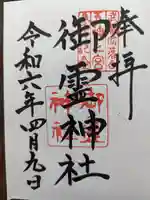 奉拝
御霊神社
令和六年四月九日